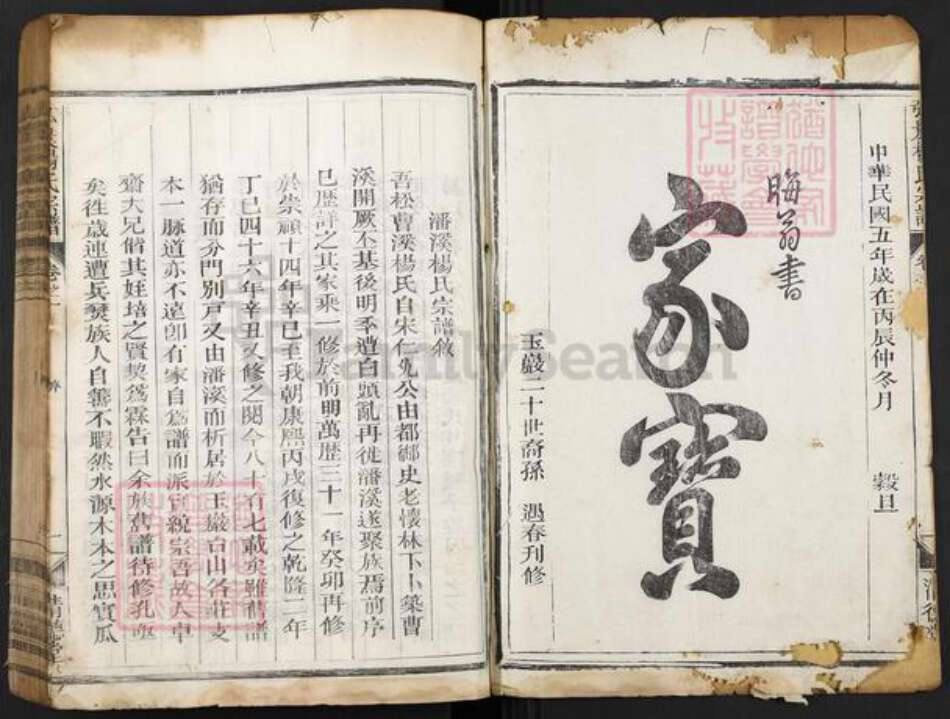 中華民國五年歲在丙辰仲冬月 穀旦
晦翁書
家寶
玉巖二十世裔孫 遇春刊修
潘溪楊氏宗譜敘
吾松曹溪楊氏自宋仁先公由都鄉史老懷林下卜築曹
溪開厥丕基後明季遭白頭亂再徙潘溪遂聚族焉前序
已歷詳之其家乘一修於前明萬歷三十一年癸卯再修
於崇禎十四年辛巳至我朝康熙丙戌復修之乾隆二年
丁巳四十六年辛丑又修之閱今八十有七載矣雖舊譜
猶存而分門別戶又由潘溪而析居於玉巖白山各莊支
本一脈道亦不遠卽有家自為譜而派實統宗吾故人卓
齋大兄偕其姪培之賢契為霖告曰余族舊譜待修孔亟
矣徃歲連遭兵燹族人自善不暇然水源木本之思實瓜
FamilySearch